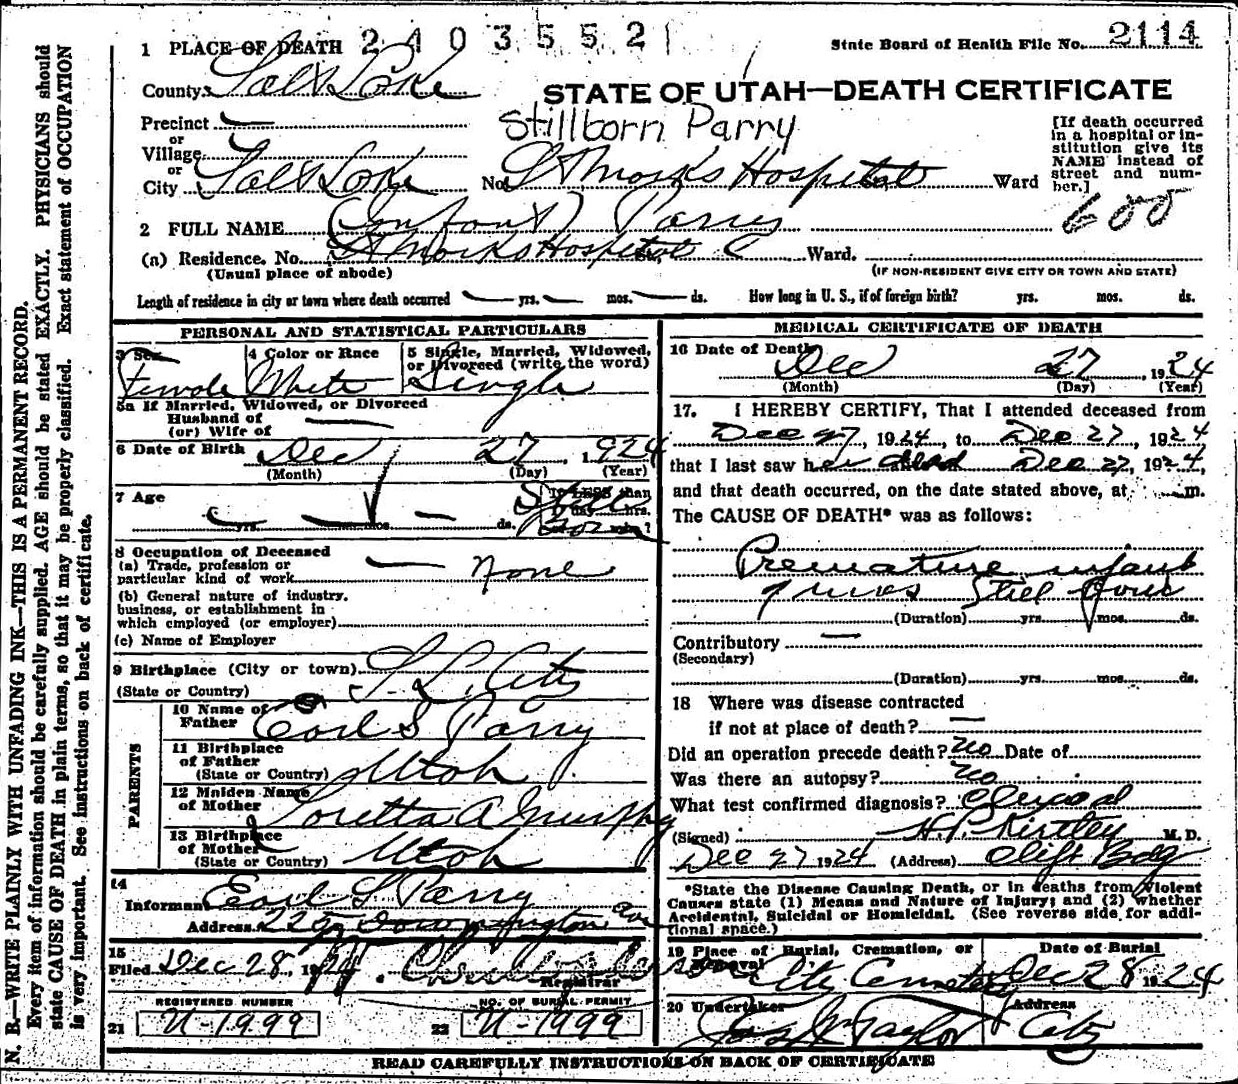 1 PLACE OF DEATH 2403552 State Board of Health File No. 2114
County Salt Lake STATE OF UTAH—DEATH CERTIFICATE
Stillborn Parry
Precinct
or
Village
or
City Salt Lake No. St Marks Hospital Ward
[If death occurred in a hospital or in-
stitution give its
NAME instead of
street and num-
ber.]
600
2 FULL NAME (Infant) Parry
(a) Residence. No. St Marks Hospital Ward.
(Usual place of abode) (IF NON-RESIDENT GIVE CITY OR TOWN AND STATE)
Length of residence in city or town where death occurred — yrs. — mos. — ds. How long in U. S., if of foreign birth? yrs. mos. ds.
PERSONAL AND STATISTICAL PARTICULARS
3 Sex 4 Color or Race 5 Single, Married, Widowed,
or Divorced (write the word)
Female White Single
5a If Married, Widowed, or Divorced
Husband of
(or) Wife of —
6 Date of Birth Dec 27 1924
(Month) (Day) (Year)
7 Age If LESS than
day hrs.
— yrs. — mos. — ds. Still Born
8 Occupation of Deceased
(a) Trade, profession or
particular kind of work — None
(b) General nature of industry,
business, or establishment in
which employed (or employer)
(c) Name of Employer
9 Birthplace (City or town) S. L. City
(State or Country)
PARENTS
10 Name of
Father Earl S Parry
11 Birthplace
of Father
(State or Country) Utah
12 Maiden Name
of Mother Loretta A Murphy
13 Birthplace
of Mother
(State or Country) Utah
14
Informant Earl S Parry
Address
15
Filed Dec 28, 1924
Registrar
REGISTERED NUMBER NO. OF BURIAL PERMIT
21 U-1999 22 U-1999
MEDICAL CERTIFICATE OF DEATH
16 Date of Death Dec 27, 1924
(Month) (Day) (Year)
17. I HEREBY CERTIFY, That I attended deceased from
Dec 27, 1924, to Dec 27, 1924
that I last saw her dead Dec 27, 1924,
and that death occurred, on the date stated above, at m.
The CAUSE OF DEATH* was as follows:
Premature infant
7 mos Still Born
(Duration) yrs. mos. ds.
Contributory —
(Secondary)
(Duration) yrs. mos. ds.
18 Where was disease contracted
if not at place of death? —
Did an operation precede death? No Date of
Was there an autopsy? No
What test confirmed diagnosis? Clinical
(Signed) H. P. Kirtley M. D.
Dec 27 1924 (Address) Clift Bldg
*State the Disease Causing Death, or in deaths from Violent
Causes state (1) Means and Nature of Injury; and (2) whether
Accidental, Suicidal or Homicidal. (See reverse side for addi-
tional space.)
19 Place of Burial, Cremation, or Date of Burial
Removal City Cemetery Dec 28 1924
20 Undertaker Address
Jos Wm Taylor City
READ CAREFULLY INSTRUCTIONS ON BACK OF CERTIFICATE
N. B.—WRITE PLAINLY WITH UNFADING INK—THIS IS A PERMANENT RECORD.
Every item of information should be carefully supplied. AGE should be stated EXACTLY. PHYSICIANS should
state CAUSE OF DEATH in plain terms, so that it may be properly classified. Exact statement of OCCUPATION
is very important. See instructions on back of certificate.